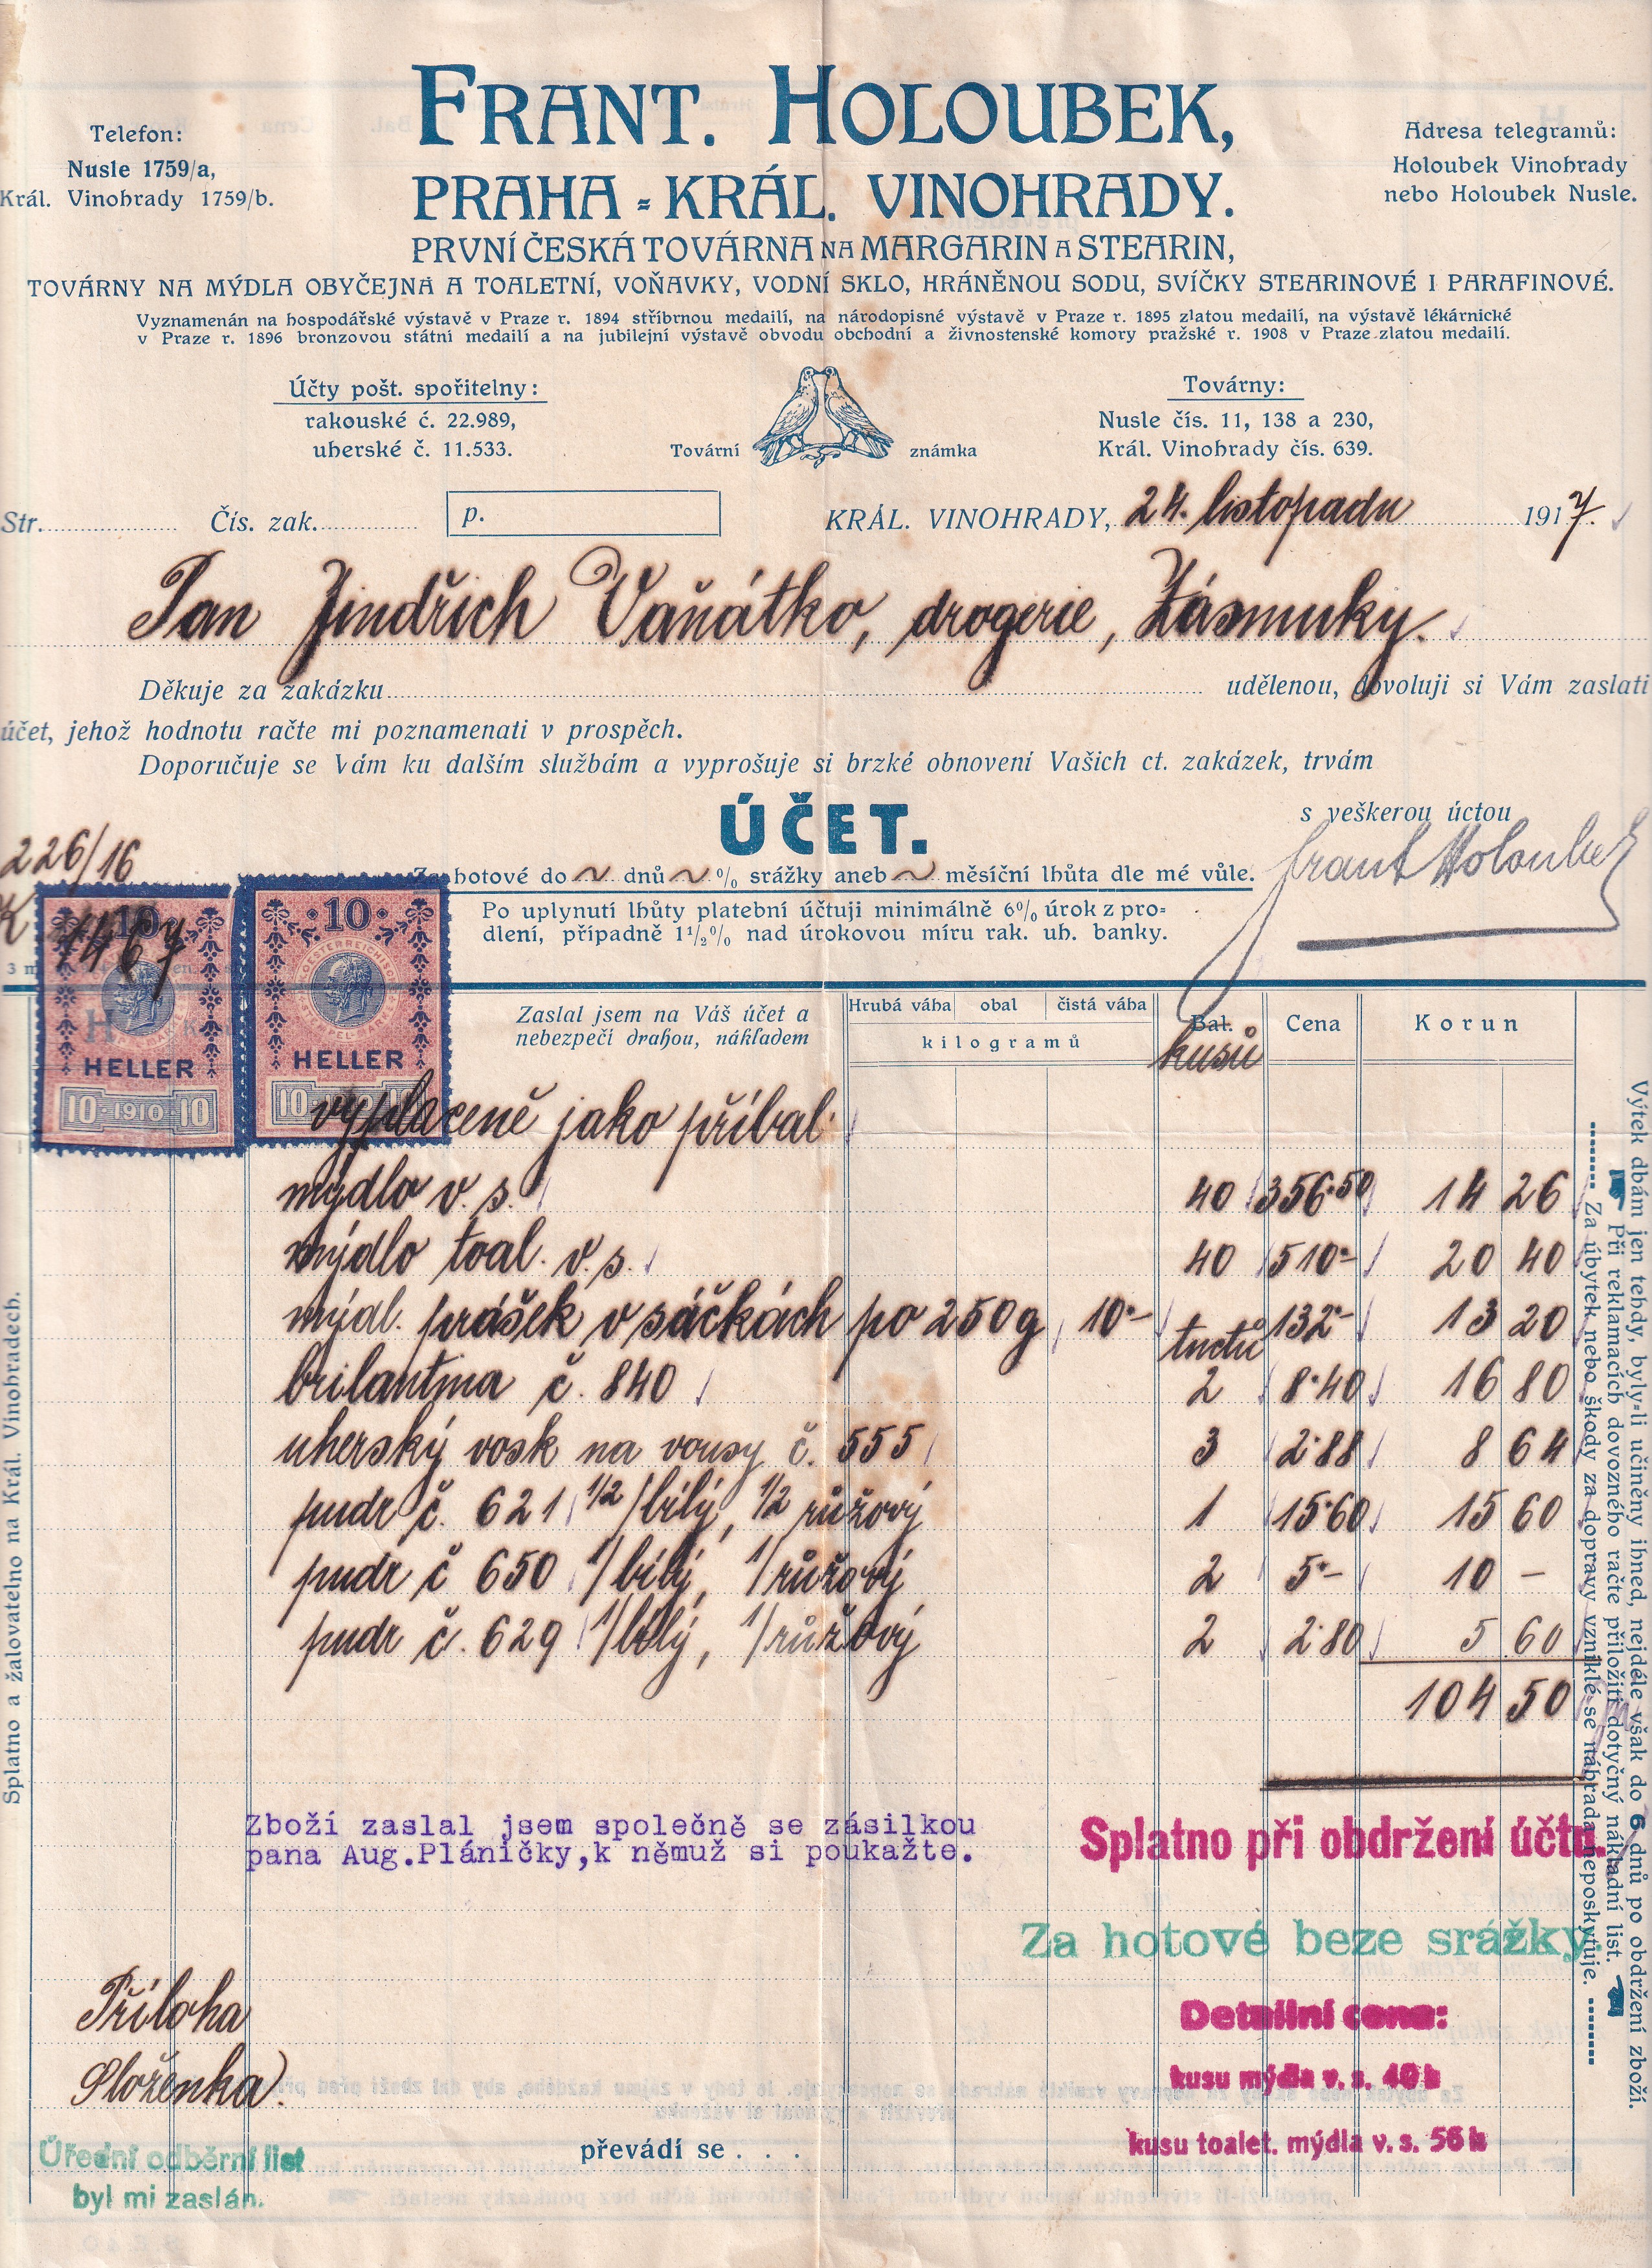 FRANT. HOLOUBEK,
PRAHA - KRÁL. VINOHRADY.
Telefon:
Nusle 1759/a,
Král. Vinohrady 1759/b.
Adresa telegramů:
Holoubek Vinohrady
nebo Holoubek Nusle.
PRVNÍ ČESKÁ TOVÁRNA NA MARGARIN A STEARIN,
TOVÁRNY NA MÝDLA OBYČEJNÁ A TOALETNÍ, VOŇAVKY, VODNÍ SKLO, HRÁNĚNOU SODU, SVÍČKY STEARINOVÉ I PARAFINOVÉ.
Vyznamenán na hospodářské výstavě v Praze r. 1894 stříbrnou medailí, na národopisné výstavě v Praze r. 1895 zlatou medailí, na výstavě lékárnické
v Praze r. 1896 bronzovou státní medailí a na jubilejní výstavě obvodu obchodní a živnostenské komory pražské r. 1908 v Praze zlatou medailí.
Účty pošt. spořitelny:
rakouské č. 22.989,
uherské č. 11.533.
Tovární známka
Továrny:
Nusle čís. 11, 138 a 230,
Král. Vinohrady čís. 639.
Str. Čís. zak. p. KRÁL. VINOHRADY, 24. listopadu 1917.
Pan Jindřich Vaňátko, drogerie, Zásmuky.
Děkuje za zakázku udělenou, dovoluji si Vám zaslati
účet, jehož hodnotu račte mi poznamenati v prospěch.
Doporučuje se Vám ku dalším službám a vyprošuje si brzké obnovení Vašich ct. zakázek, trvám
s veškerou úctou
ÚČET.
Frant Holoubek
226/16
K 1467
Za hotové do ~ dnů ~ % srážky aneb ~ měsíční lhůta dle mé vůle.
Po uplynutí lhůty platební účtuji minimálně 6% úrok z pro-
dlení, případně 1 1/2% nad úrokovou míru rak. uh. banky.
10 HELLER 10 1910 10
10 HELLER 10
Zaslal jsem na Váš účet a
nebezpečí drahou, nákladem
Hrubá váha obal čistá váha
kilogramů
Bal. Cena Korun
kusů
vyplaceně jako příbal
mýdlo v. s. 40 356·50 14 26
mýdlo toal. v. s. 40 510·- 20 40
mýdl. prášek v sáčkách po 250 g 10·- 132·- 13 20
tuctů
brilantina č. 840 2 8·40 16 80
uherský vosk na vousy č. 555 3 2·88 8 64
pudr č. 621 1/2/bílý, 1/2 růžový 1 15·60 15 60
pudr č 650 1/bílý, 1/růžový 2 5·- 10 -
pudr č. 629 1/bílý, 1/růžový 2 2·80 5 60
104 50
Zboží zaslal jsem společně se zásilkou
pana Aug.Pláničky,k němuž si poukažte.
Splatno při obdržení účtu.
Za hotové beze srážky.
Detailní cena:
kusu mýdla v. s. 40 h
kusu toalet. mýdla v. s. 56 h
Příloha
Složenka.
Úřední odběrní list
byl mi zaslán.
převádí se . . .
Splatno a žalovatelno na Král. Vinohradech.
Výtek dbám jen tehdy, byly-li učiněny ihned, nejdéle však do 6 dnů po obdržení zboží.
Při reklamacích dovozného račte přiložiti dotyčný nákladní list.
Za úbytek nebo škody za dopravy vzniklé se náhrada neposkytuje.